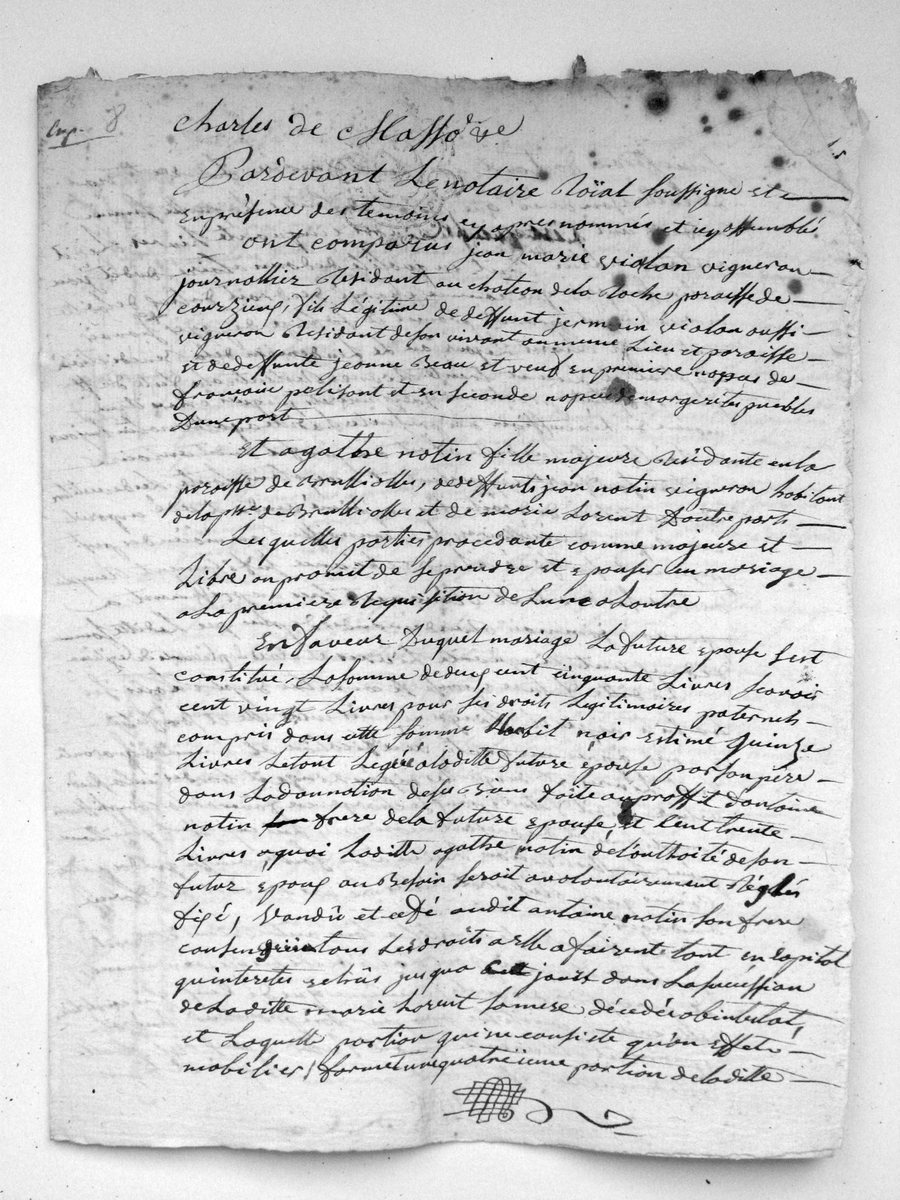 8
15
Charles de Masso &c
Pardevant Le notaire Roïal soussigné et
en présence des temoins cy apres nommés et icy assemblé
ont comparus jean marie violan vigneron
journallier Résidant au chateau de la Roche paroisse de
courzieu, fils Légitime de deffunt jermain violan aussi
vigneron Résidant de son vivant au meme Lieu et paroisse
et de deffunte jeanne Beau et veuf en premiere nopces de
francoise pelisont et en seconde nopces de margerites puebles
D'une part
Et agathe notin fille majeure Résidante en la
paroisse de Brulliolles, de deffunts jean notin vigneron habitant
de la psse de Brulliolles et de marie Lorent D'autre part
Lesquelles parties procedante comme majeure et
Libre on promit de se prendre et epouser en mariage
a La premiere Requisition de L'une a L'autre
En faveur Duquel mariage La future epouse s'est
constitué, La somme de deux cent cinquante Livres scavoir
cent vingt Livres pour ses droits Legitimaires paternels
compris dans cette somme Habit noir estimé quinze
Livres Le tout Legué a laditte future épouse par son père
dans La donnation de ses Biens faite au proffit d'antoine
notin frere de la future epouse et cent trente
Livres a quoi Laditte agathe notin de l'authoité de son
futur epoux au Besoin serait volontairement Réglés
fixé, vandû et cedé audit antoine notin son frere
tous Les droits a elle afferent tant en capital
qu'interetes echûs jusqua cet jour dans La sucession
de Laditte marie Lorent sa mere décedée abintestat,
et Laquelle portion qui ne consiste qu'en effets
mobilier, formet une quatrieme portion de laditte